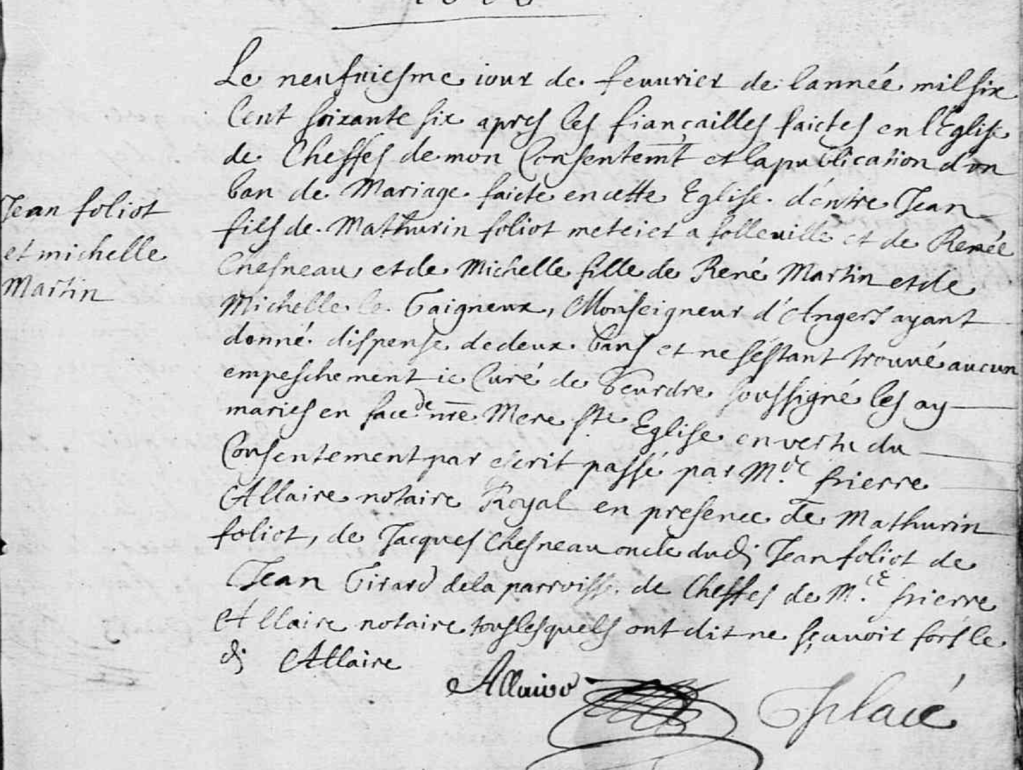 Le neufviesme iour de feuvrier de lannée mil six
Cent soixante six apres les fiançailles faictes en l'Eglise
de Cheffes de mon Consentemt et la publication d'un
ban de Mariage faicte en cette Eglise. d'entre Jean
fils de Mathurin foliot meteier a folleville et de Renée
Chesneau, et de Michelle fille de René Martin et de
Michelle le Gaigneux, Monseigneur d'Angers ayant
donné dispense de deux bans et ne s'estant trouvé aucun
empeschement ie Curé de soussigné les ay
mariés en face de nre Mere ste Eglise en vertu du
Consentement par écrit passé par Me. pierre
Allaire notaire Royal en presence de Mathurin
foliot, de Jacques Chesneau oncle dudi Jean foliot de
Jean Girard de la parroisse de Cheffes de Me. pierre
Allaire notaire tous lesquels ont dit ne sçavoir fors le
di Allaire
Jean foliot
et michelle
Martin
Allaire